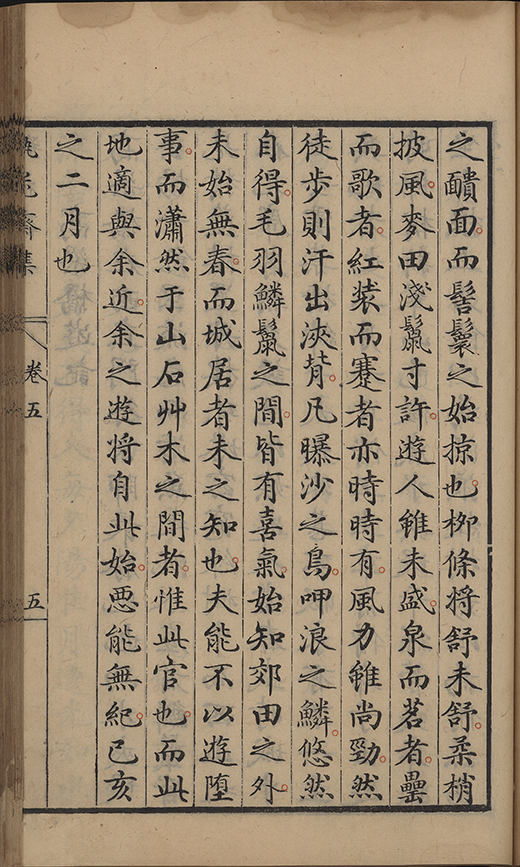 之靧面而髻鬟之始掠也柳條將舒未舒柔梢
披風麥田淺鬣寸許遊人雖未盛泉而茗者罍
而歌者紅裝而蹇者亦時時有風力雖尚勁然
徒步則汗出浹背凡曝沙之鳥呷浪之鱗悠然
自得毛羽鱗鬣之間皆有喜氣始知郊田之外
未始無春而城居者未之知也夫能不以遊墮
事而瀟然于山石艸木之間者惟此官也而此
地適與余近余之遊將自此始惡能無紀己亥
之二月也
齋集 卷五 五